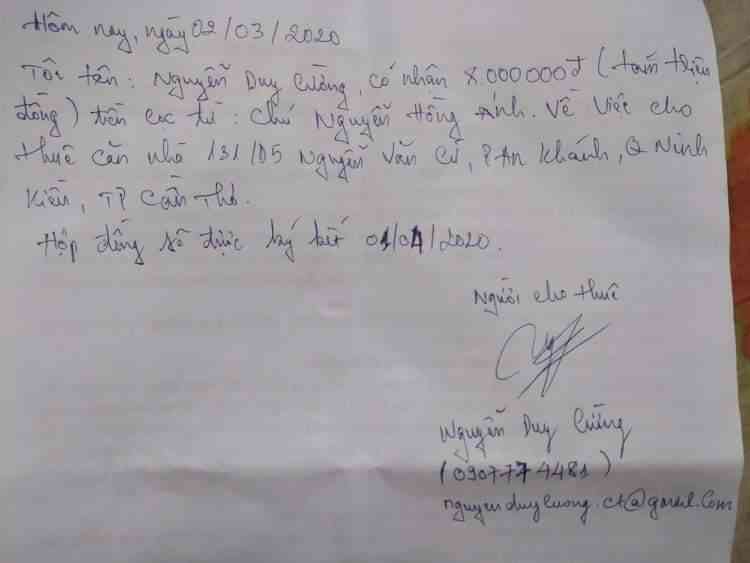 Hôm nay, ngày 02/03/2020
Tôi tên: Nguyễn Duy Cường, có nhận 8.000000đ (tám triệu
đồng) tiền cọc từ: Chú Nguyễn Hồng Ánh. Về việc cho
thuê căn nhà 131/05 Nguyễn Văn Cừ, P An Khánh, Q Ninh
Kiều, TP Cần Thơ.
Hợp đồng sẽ được ký kết 01/04/2020.
Người cho thuê
Nguyễn Duy Cường
(0907774481)
nguyenduycuong.ct@gmail.com